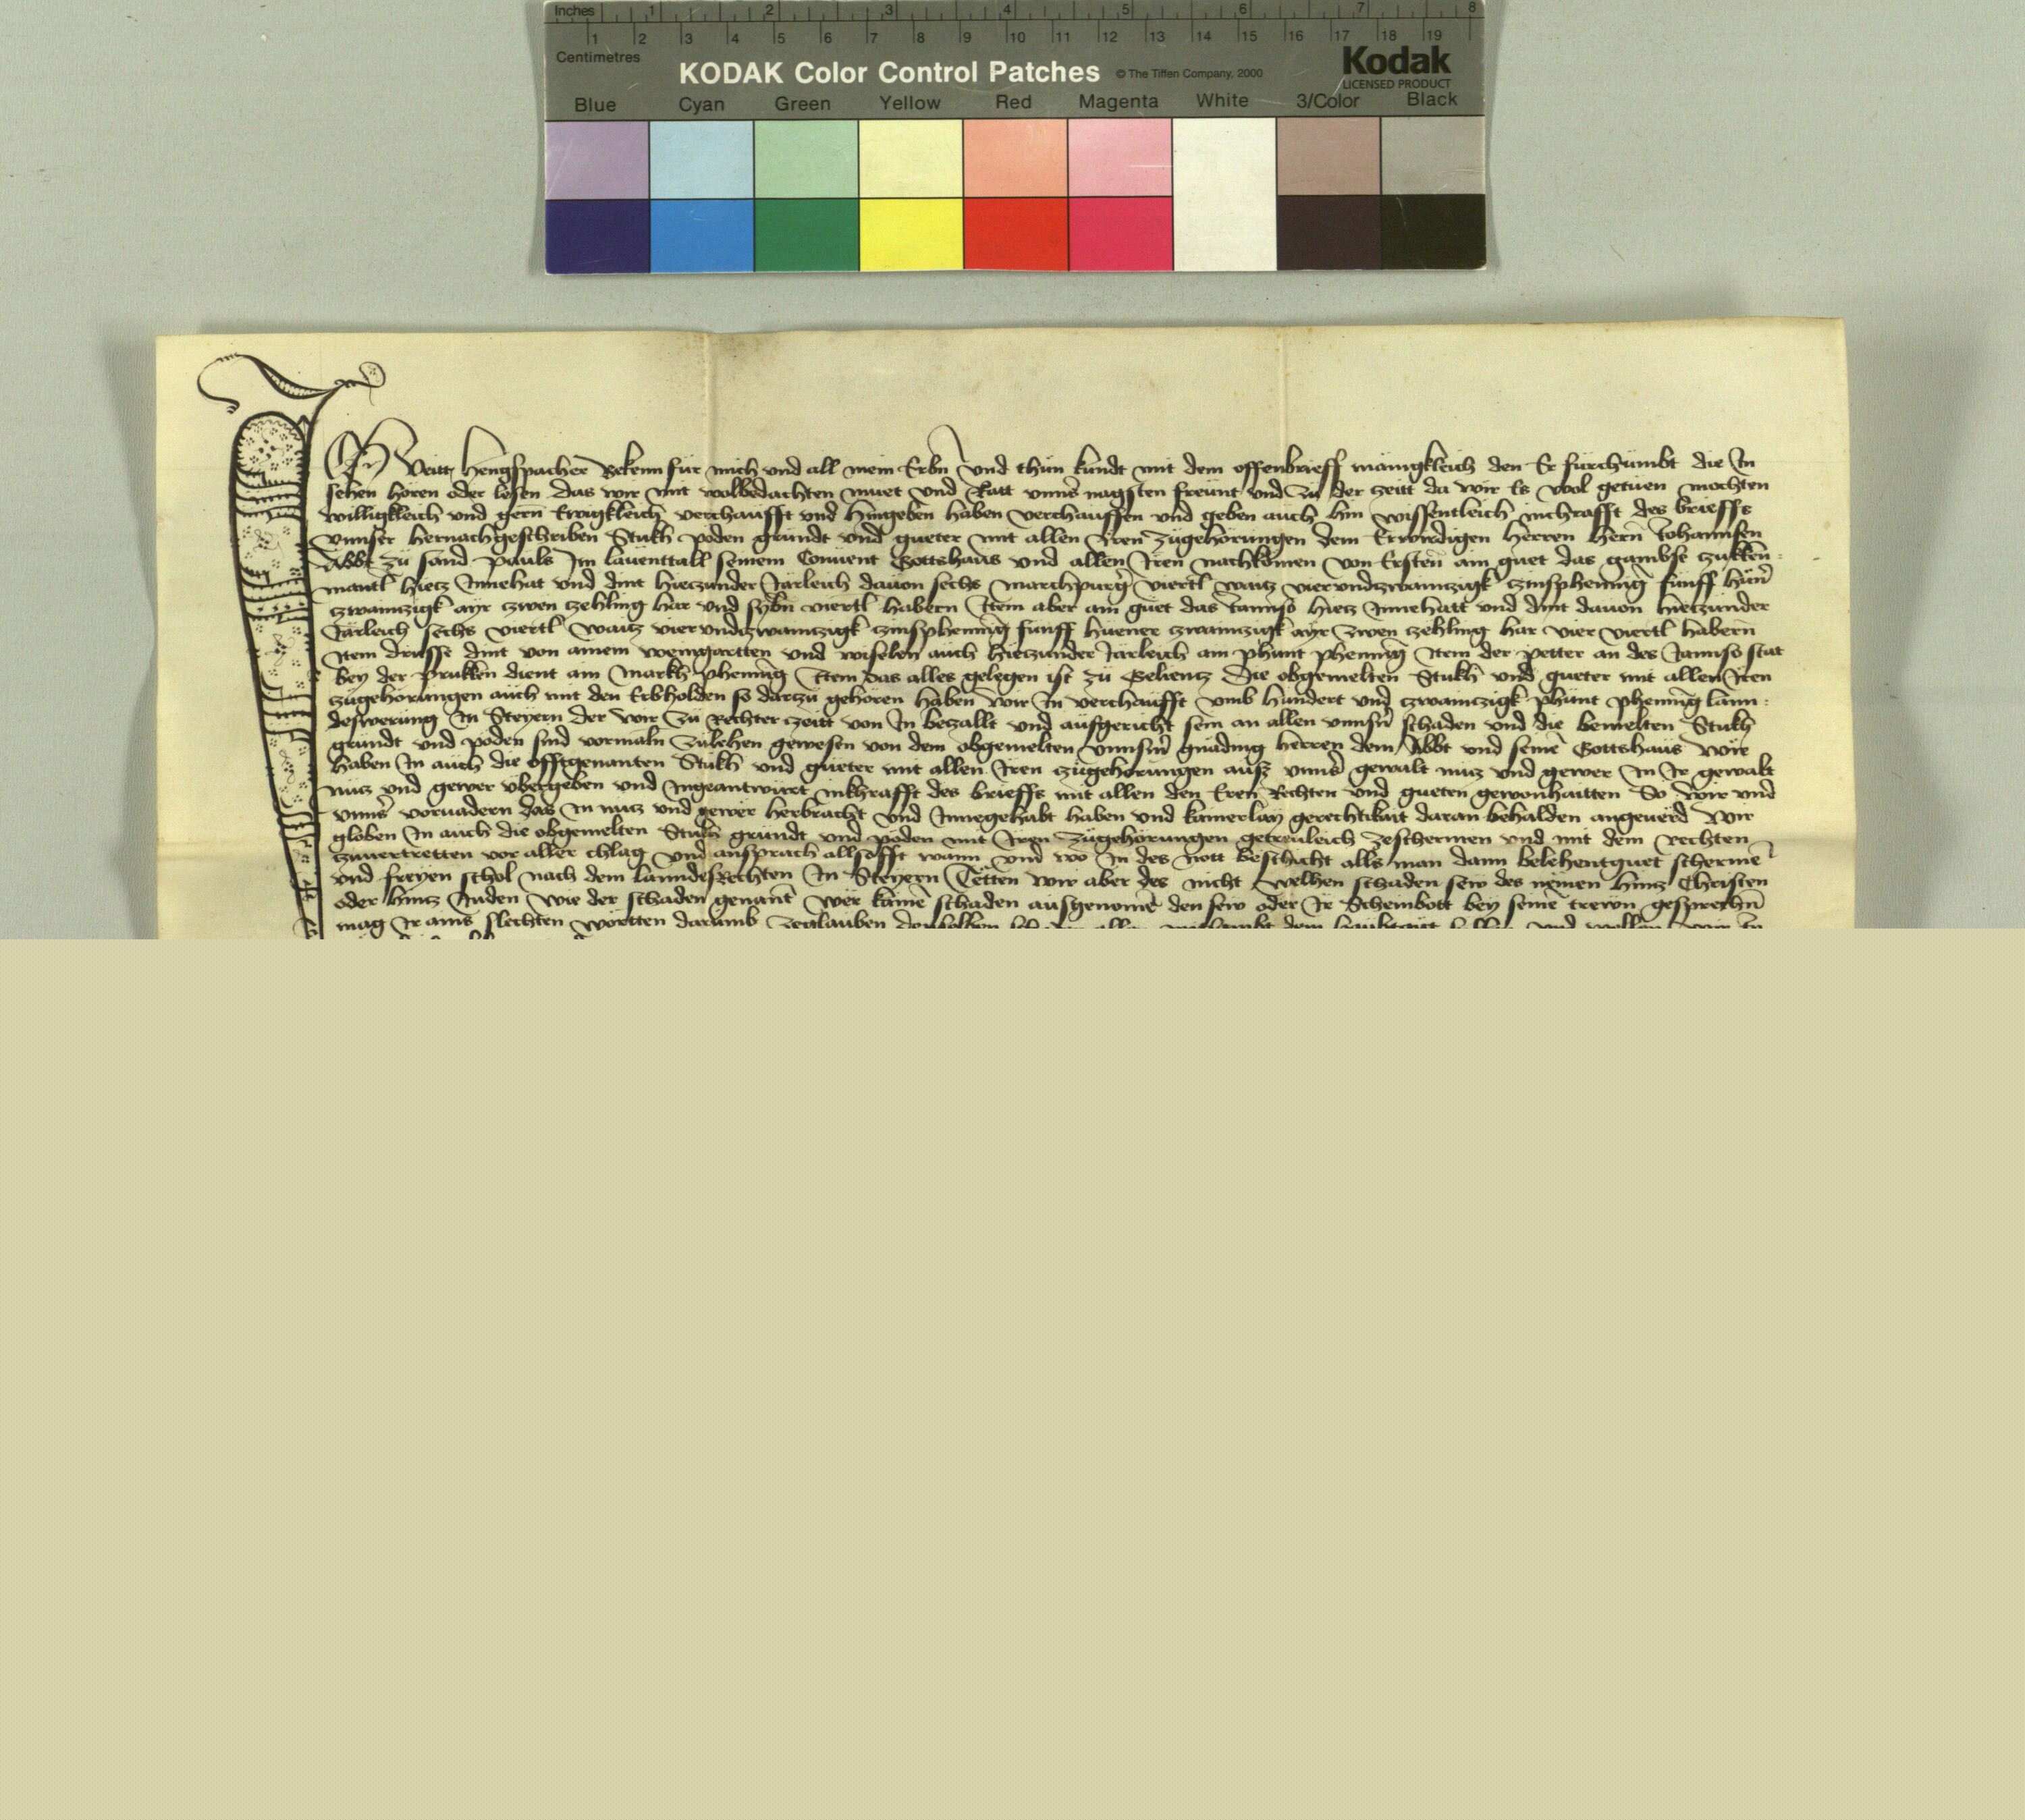 Inches 1 2 3 4 5 6 7 8
1 2 3 4 5 6 7 8 9 10 11 12 13 14 15 16 17 18 19
Centimetres
KODAK Color Control Patches © The Tiffen Company, 2000 Kodak
LICENSED PRODUCT
Blue Cyan Green Yellow Red Magenta White 3/Color Black
Ich Veitt hengspacher Bekenn für mich und all mein Erbn und thün kundt mit dem offenbrieff mänigkleich den Er fürchümbt die In
sehen hören oder lesen das wir mit wolbedachten müet und Ratt unnsr nagsten freünt und zu der zeitt da wir Es wol getuen mochten
willigkleich und gern Ewigkleich verchaufft und hingeben haben verchauffen und geben auch hin wissentleich inchrafft des brieffs
unnser hernachgeschriben Stukh poden gründt und gueter mit allen Iren zügehörungen dem Erwirdigen herren hern Johannsen
Abbt zu sand pauls Im lauenttall seinem Conuent Gottshaus und allen Iren nachkomen von Ersten ain guet das gambse zukken
mantl hietz Innehat und dint hietzunder Järleich dauon sechs marchpurgr viertl waitz vierundzwaintzigk zinsphening funff hünr
zwaintzigk ayr zwen zehling har und sybn viertl habern Item aber ain guet das Jannso hietz Innehatt und dint dauon hietzunder
Järleich sechs viertl waitz vierundzwaintzigk zinsphening funff hüener zwaintzigk ayr zwen zehling har vier viertl habern
Item drusse dint von ainem weingartten und wiselen auch hietzunder Järleich ain phunt phening Item der petter an des Jannso stat
bey der prukken dient ain markh phening Item das alles gelegen ist zü Gelientz Die obgemelten Stukh und gueter mit allen Iren
zugehörungen auch mit den Erbholden so darzu gehören haben wir In verchaufft umb hundert und zwaintzigk phunt phening lann
deswerung In Steyern der wir zu Rechter zeitt von In bezallt und aufgericht sein an allen unnsrn schaden und die bemelten Stukh
gründt und poden sind vormaln zulehen gewesen von dem obgemelten unnsrn gnading herren dem Abbt und seine Gottshaus wir
haben In auch die offtgenanten Stukh und güeter mit allen Iren zügehorungen ausz unnsr gewalt nutz und gewer In Ir gewalt
nutz und gewer übergeben und Ingeantwürt inkhrafft des brieffs mit allen den Eren Rechten und gueten gewonhaitten So wir und
unnsr voruadern das In nutz und gewer herbracht und Innegehabt haben und kainerlay gerechtikait daran behalden angeuerd wir
globen In auch die obgemelten Stukh gründt und poden mit Iren Zugehörungen getreuleich zeschermen und mit dem Rechten
zuuertretten vor aller chlag und ansprach allsofft wann und wo In des nott beschicht alls man dann belehentguet scherme
und freyen schol nach dem lanndesRechten In Steyern Tetten wir aber des nicht welhen schaden sew des nemen hintz Christen
oder hintz Juden wie der schaden genant wer kaine schaden ausgenome den sew oder Ir Scheinbott bey seine trewn gesprechn
mag Ir ains slechten wortten darumb zeglauben